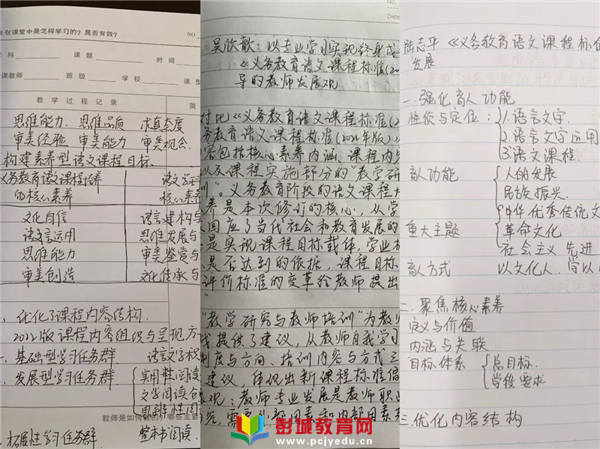 在课堂中是怎样学习的？是否有效？
NO.
学科
课题
时间
授课教师
班级
学校
教学过程记录
思维能力 思维品质 求真态度
审美经验 审美能力 审美观念
构建素养型语文课程目标
义务教育语文课程培养
的核心素养
文化自信
语言运用
思维能力
审美创造
语言建构与
思维发展与
审美鉴赏与
文化传承与
优化了课程内容结构
2022版课程内容组织与呈现方
一、基础型学习任务群
语言文字积
发展型学习任务群
实用性阅读
文学阅读创
思辨性阅
拓展性学习任务群
整本书阅读
教师是如何
吴欣歆：以专业学习实现终身成
《义务教育语文课程标准(2
导的教师发展观
对比《义务教育语文课程标准(2
务教育语文课程标准(2022年版)》
容包括核心素养内涵、课程内
以及课程实施部分的“教学研
训”。义务教育阶段的语文课程
养是本次修订的核心，从学
回应了当代社会和教育发展的
是实现课程目标载体，学业
是否达到的依据，课程目标
评价标准的变革给教师提出
“教学研究与教师培训”为教
我提供了建议，从教师自我学习
制度与方向、培训内容与方式三
建议，体现出新课程标准倡
观：教师专业发展是教师职
展，需要外部因素和内部因素
NO.
Date
陆志平《义务教育语文课程标准
发展
一、强化育人功能
性质与定位：
1.语言文字
2.语言文字运用
3.语文课程
育人功能
人的发展
民族振兴
重大主题
中华优秀传统文
革命文化
社会主义先进
育人方式
以文化人
二、聚焦核心素养
定义与价值
内涵与关联
目标体系
总目标
学段要求
三、优化内容结构
彭城教育网
www.pcjyedu.cn